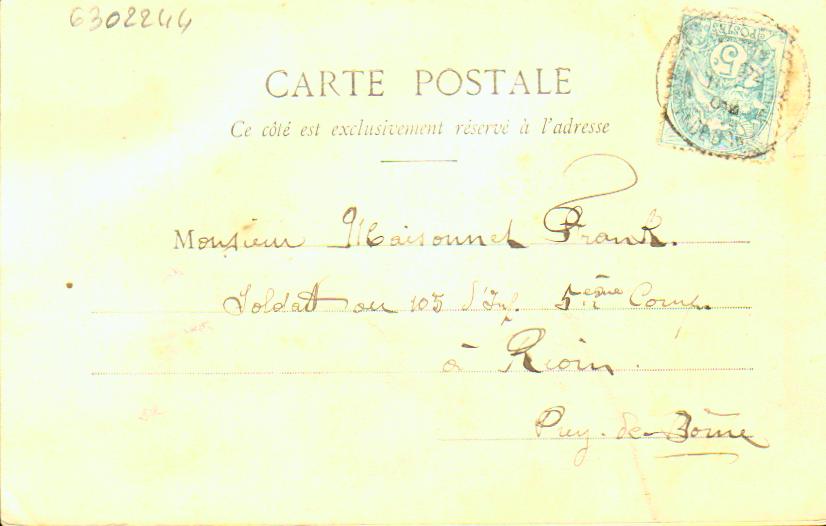 6302244
POSTES
5
CARTE POSTALE
Ce côté est exclusivement réservé à l'adresse
Monsieur Maisonnet Frank.
Soldat au 105 d'Inf. 5ème Comp.
à Riom.
Puy-de-Dôme